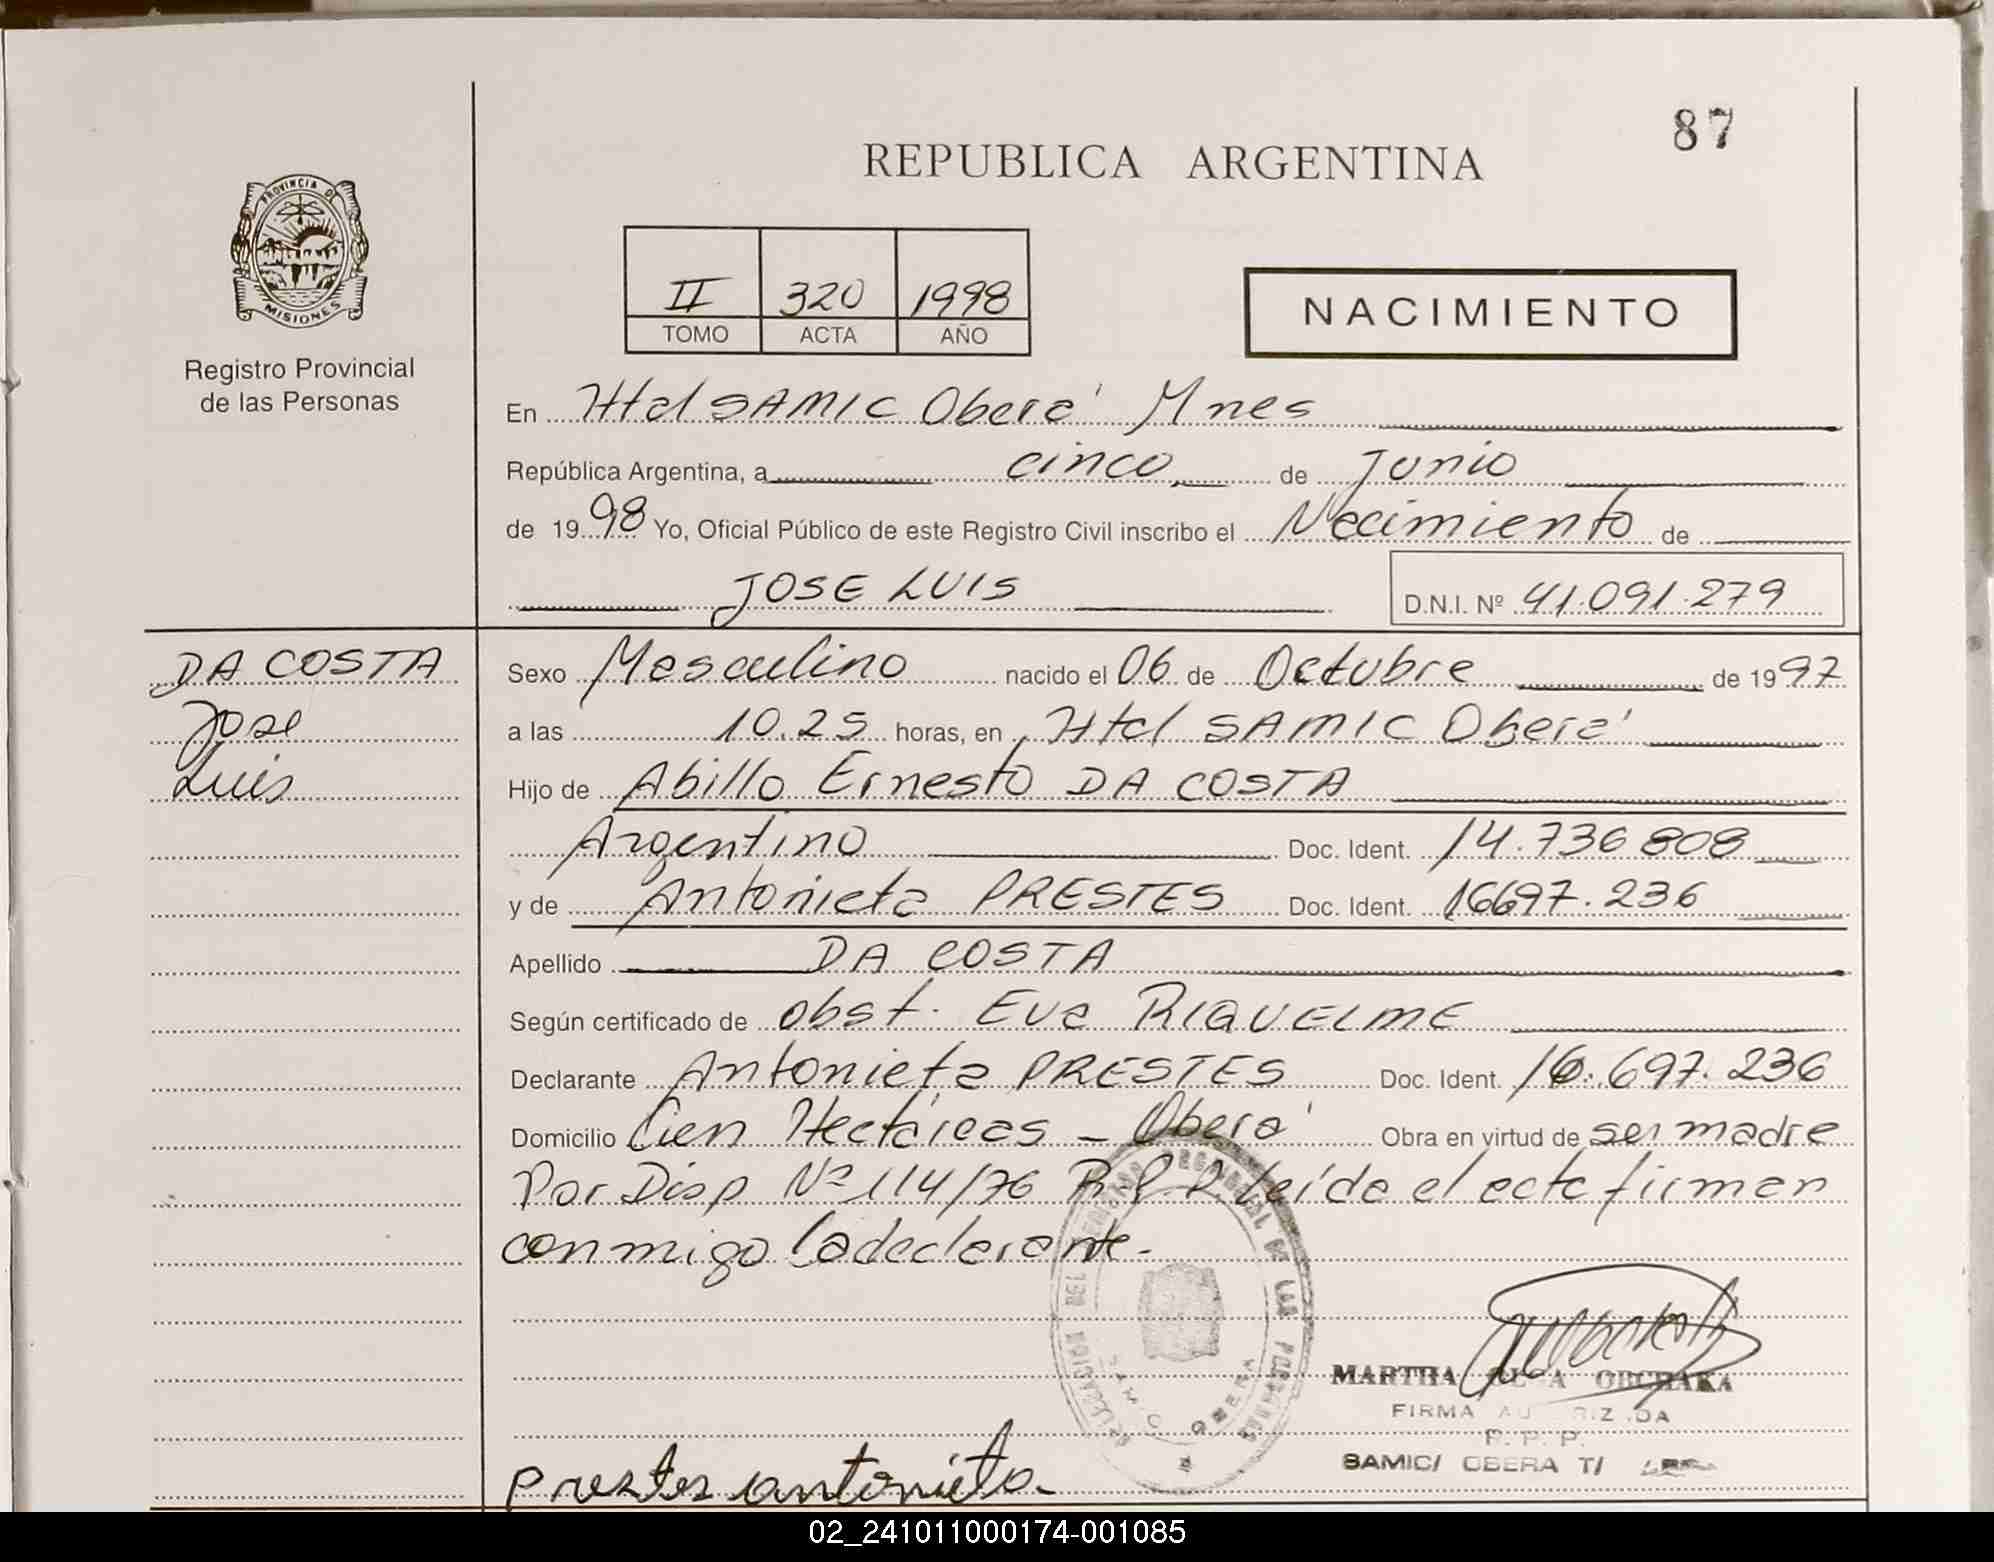 87
REPUBLICA ARGENTINA
PROVINCIA DE
MISIONES
Registro Provincial
de las Personas
II 320 1998
TOMO ACTA AÑO
NACIMIENTO
En Htal SAMIC Oberá Mnes
República Argentina, a cinco de Junio
de 1998 Yo, Oficial Público de este Registro Civil inscribo el Nacimiento de
JOSE LUIS D.N.I. Nº 41.091.279
DA COSTA
Jose
Luis
Sexo Masculino nacido el 06 de Octubre de 1997
a las 10.25 horas, en Htal SAMIC Oberá
Hijo de Abillo Ernesto DA COSTA
Argentino Doc. Ident. 14.736 808
y de Antonieta PRESTES Doc. Ident. 16697.236
Apellido DA COSTA
Según certificado de obst. Eva RIQUELME
Declarante Antonieta PRESTES Doc. Ident. 16.697.236
Domicilio Cien Hectáreas - Oberá Obra en virtud de ser madre
Por Disp Nº 114/76 R.P.P. leída el acta firman
conmigo la declarante.
DELEGACION DEL REGISTRO PROVINCIAL DE LAS PERSONAS
SAMIC OBERA
MARTHA OLGA OBCHAKA
FIRMA AUTORIZADA
R. P. P.
SAMIC/ OBERA T/
Prestes antonieta
02_241011000174-001085